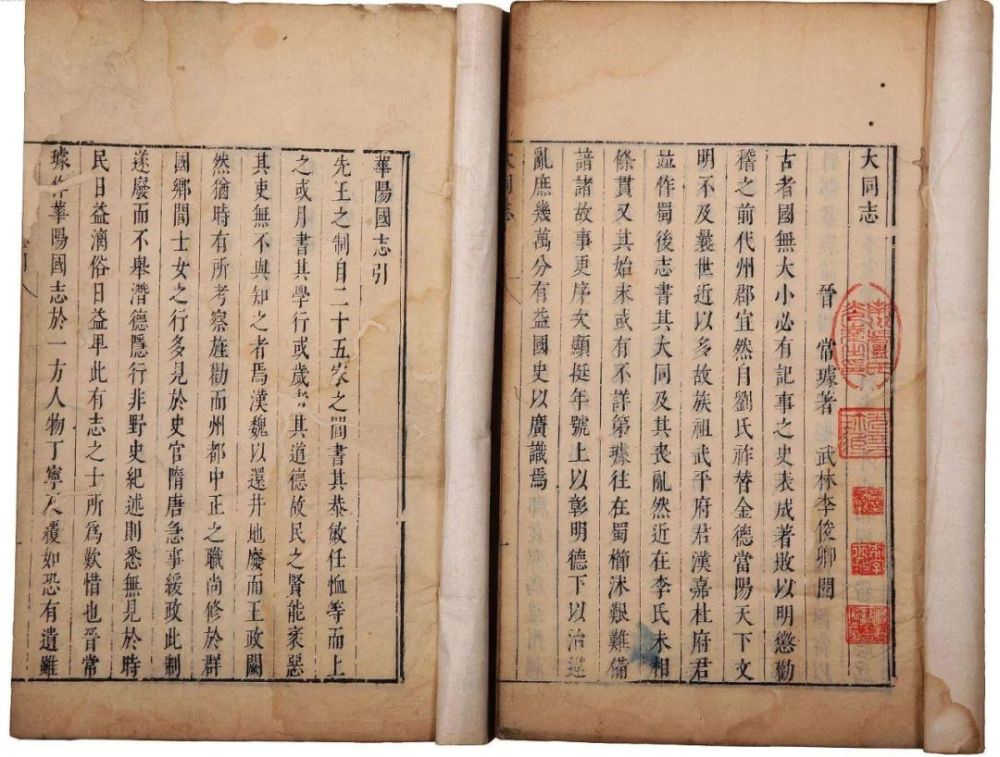 大同志
晉 常璩著 武林李俊卿閱
古者國無大小必有記事之史表成著敗以明懲勸
稽之前代州郡宜然自劉氏祚替金德當陽天下文
明不及曩世近以多故族祖武平府君漢嘉杜府君
竝作蜀後志書其大同及其喪亂然近在李氏未相
條貫又其始末或有不詳第璩往在蜀櫛沐艱難備
諳諸故事更序次顯挺年號上以彰明德下以治違
亂庶幾萬分有益國史以廣識焉
大同志
華陽國志引
先王之制自二十五家之閭書其恭敏任恤等而上
之或月書其學行或歲考其道德故民之賢能衺惡
其吏無不與知之者焉漢魏以還井地廢而王政闕
然猶時有所考察旌勸而州都中正之職尚修於群
國鄉閭士女之行多見於史官隋唐急事緩政此制
遂廢而不舉潛德隱行非野史紀述則悉無見於時
民日益漓俗日益卑此有志之士所爲歎惜也晉常
璩作華陽國志於一方人物丁寧反覆如恐有遺雖